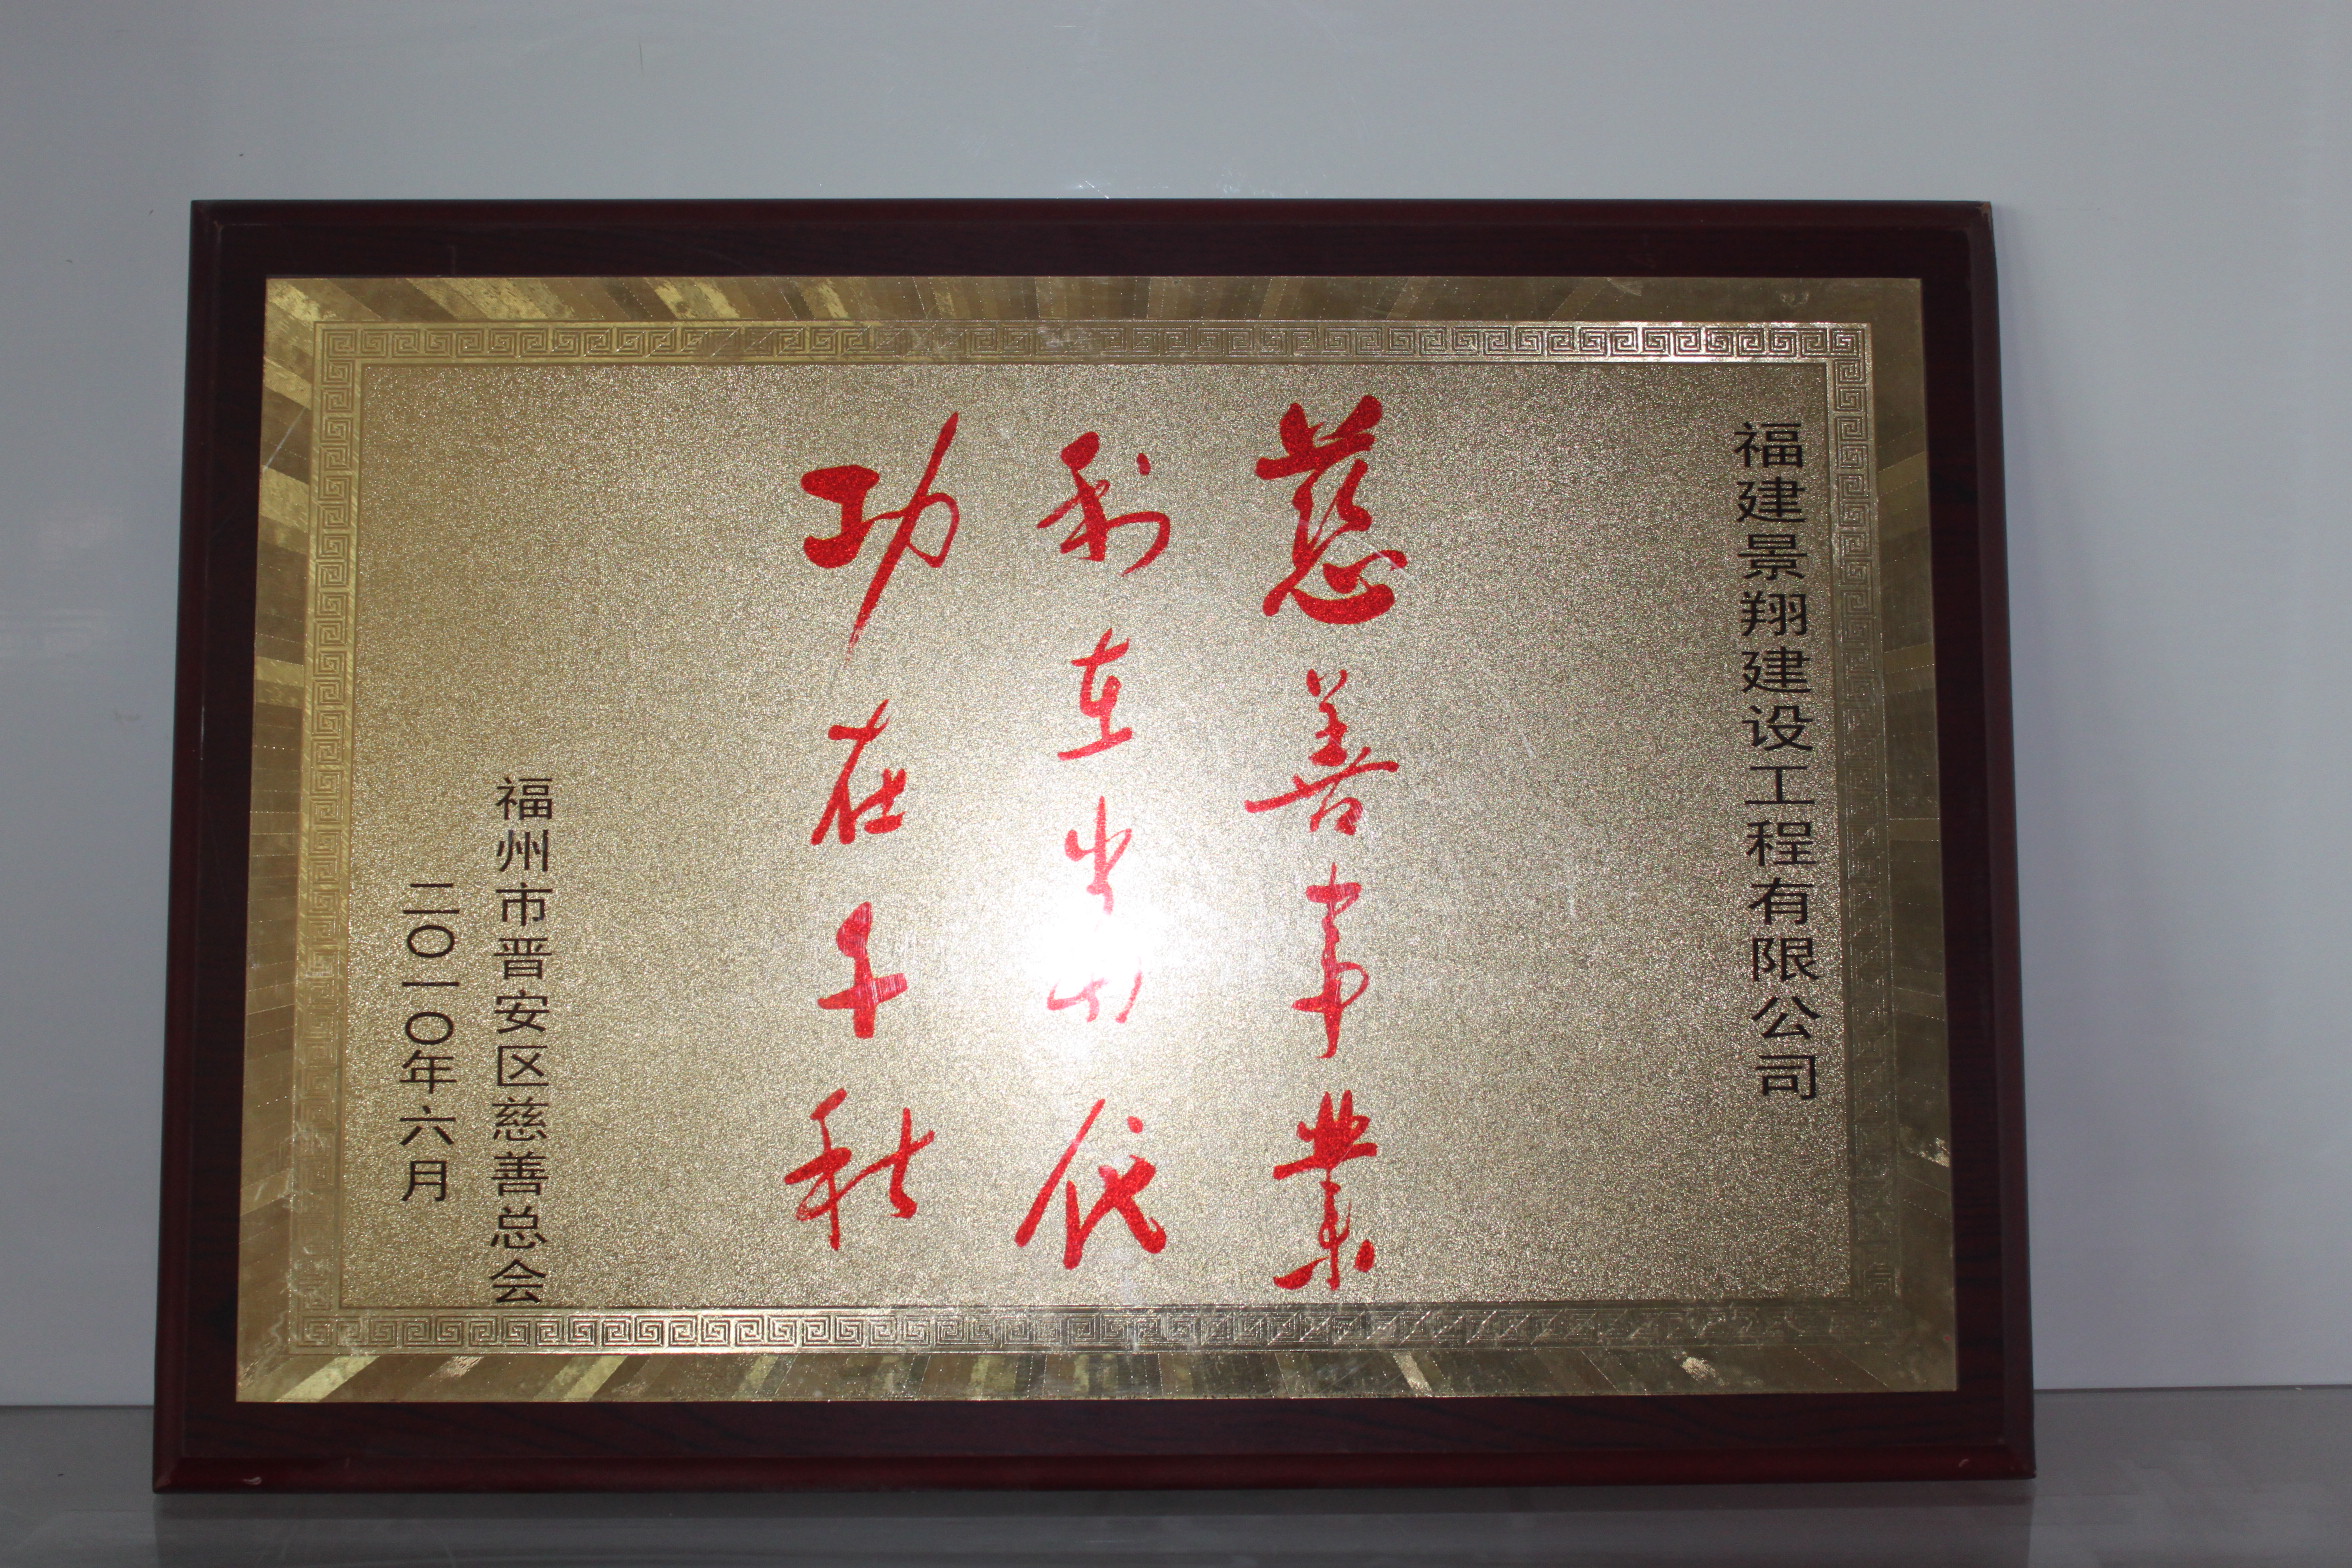 福建景翔建设工程有限公司
慈善事业
利在当代
功在千秋
福州市晋安区慈善总会
二〇一〇年六月